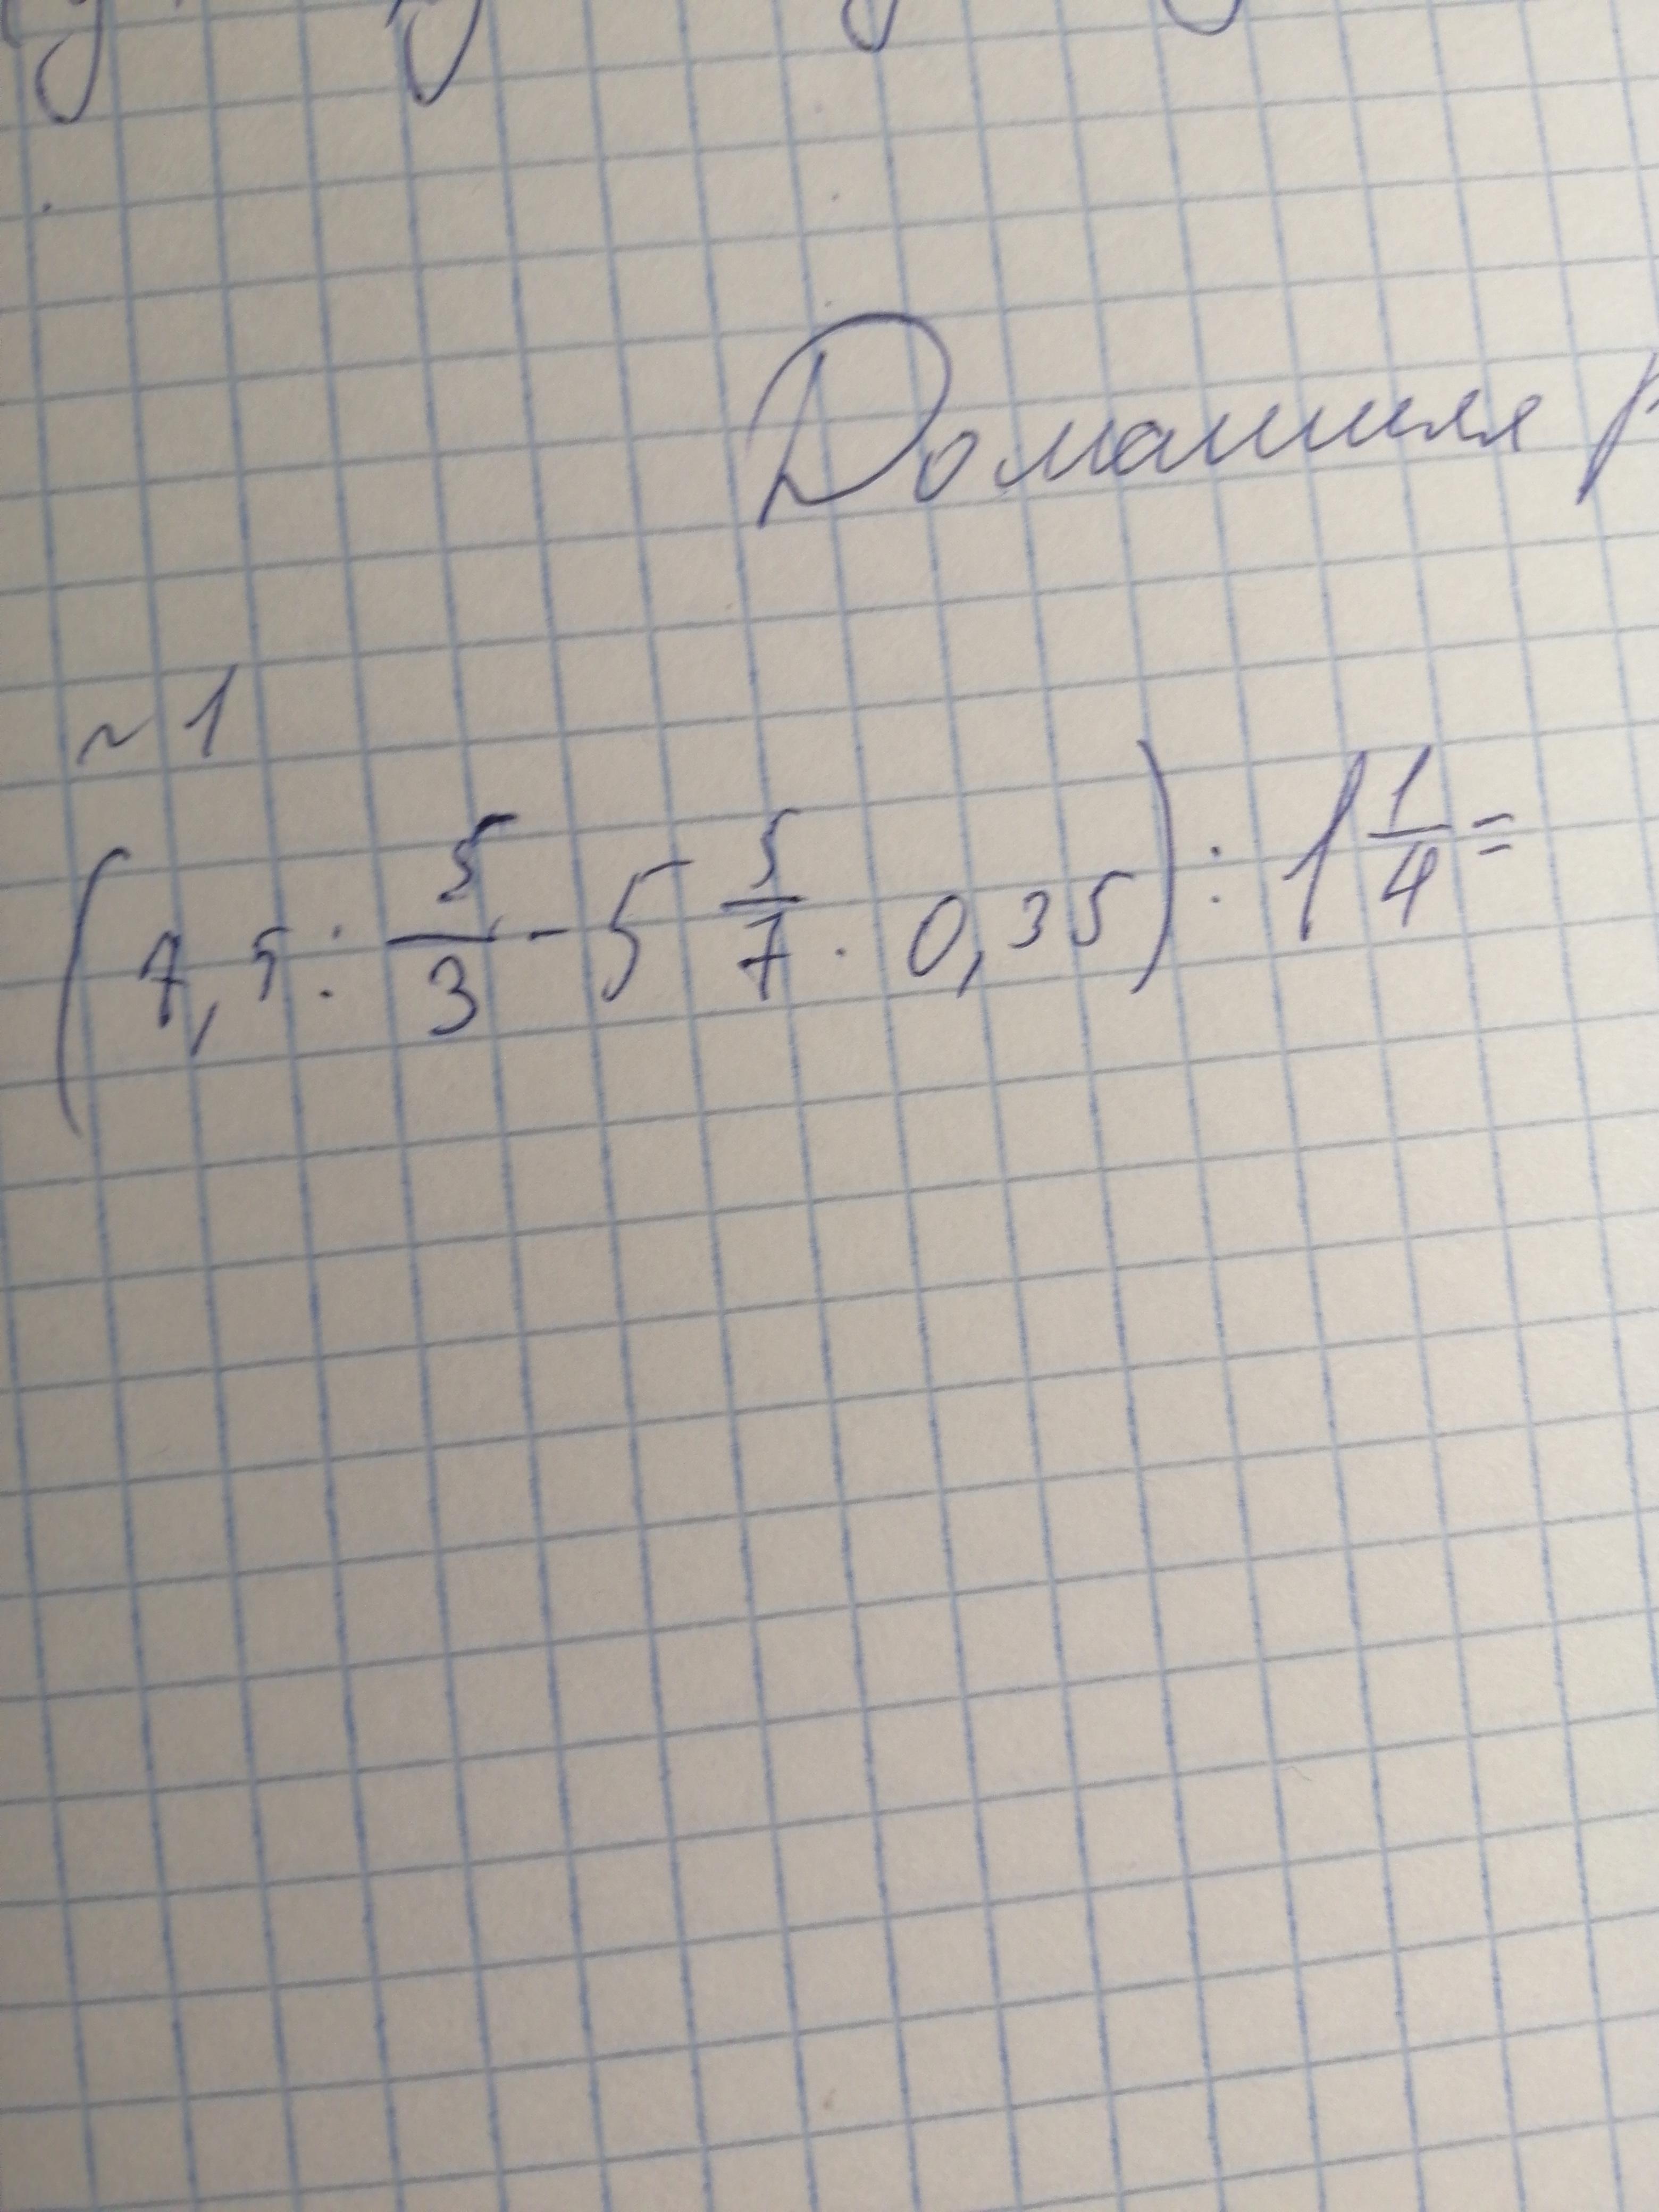 Домашняя
~1
(7,5 : 5/3 - 5 5/7 · 0,35) : 1 1/4 =